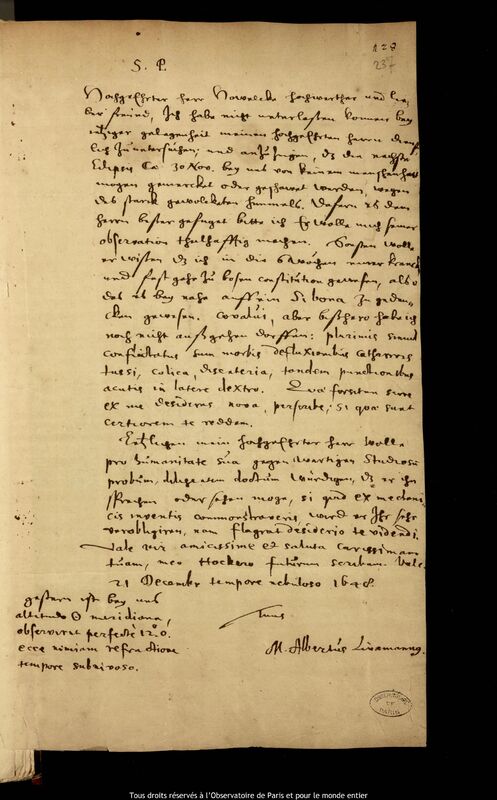 128
237
S. P.
Hochgeehrter Herr Hovelcke hochwerther und lie-
ber freind, Ich habe nicht unterlassen konnen bey
itziger gelegenheit meinen hochgeehrten Herrn dienst-
lich zu und anzuzeigen, dz die nechste
Eclipsis 30 Nov. bey uns von keinem menschen hatt
mogen gemercket oder geschawet werden, wegen
des starck gewolckten himmels. Dafern es dem
Herrn besser gefuget bitte ich Er wolle mich seiner
observation theilhafftig machen. Sonsten wolle
er wissen dz ich in die 6 wochen
und fast sehr zu bosen constitution gewesen, also
das es bey nahe auff ein Libona zu geden-
cken gewesen. Convalui, aber bisshero habe ich
noch nicht aussgehen dorffen: plurimis simul
conflictatus sum morbis defluxionibus catharris
tussi, colica, tandem punctionibus
acutis in latere dextro. Quæ forsitan scire
ex me desideras nova, perscribe, si quæ sunt
certiorem te reddam.
mein hochgeehrter Herr wolle
pro humanitate sua gegenwartigen Studiosum
probum, diligentem doctum würdigen, dz er ihn
sprechen oder sehen moge, si quid ex mechani-
cis inventis commonstraveris, wird er Ihr sehr
verobligiren, nam flagrat desiderio te videndi.
Vale vir amicissime et saluta carissimam
tuam, meo Hockero futurum scribam. Vale
21 Decembr tempore nebuloso 1648.
gestern ist bey uns
altitudo ☉ meridiana,
observirat perfectè 12°.0.
ecce nimiam refractione
tempore subnivoso.
Tuus
M. Albertus Linemannus.
OBSERVATOIRE
DE
PARIS
Tous droits réservés à l'Observatoire de Paris et pour le monde entier